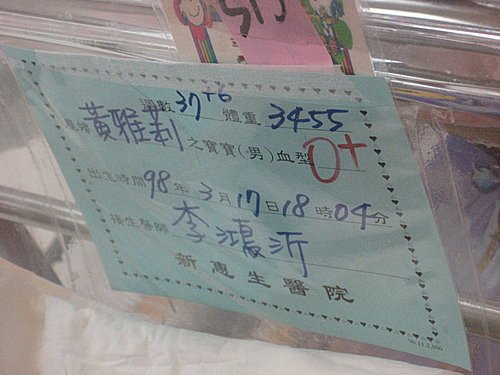 週數 37+6 體重 3455
產婦 黃雅莉 之寶寶(男)血型 O+
出生時間 98 年 3 月 17 日 18 時 04 分
接生醫師 李鴻沂
新惠生醫院
96.11.2,000